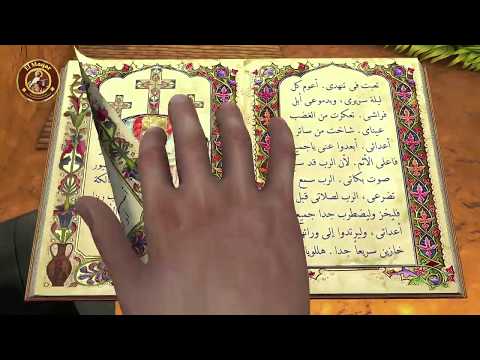 El Maqar
تعبت فى تنهدى. أعوم كل
ليلة سريرى، وبدموعى أبل
فراشى. تعكرت من الغضب
عيناى. شاخت من سائر
أعدائى. أبعدوا عنى ياجميع
فاعلى الأثم. لأن الرب قد سمع
صوت بكائى. الرب سمع
تضرعى. الرب لصلاتى قبل
فليخز وليضطرب جدا جميع
أعدائى، وليرتدوا إلى ورائهم
خازين سريعاً جدا. هللويا